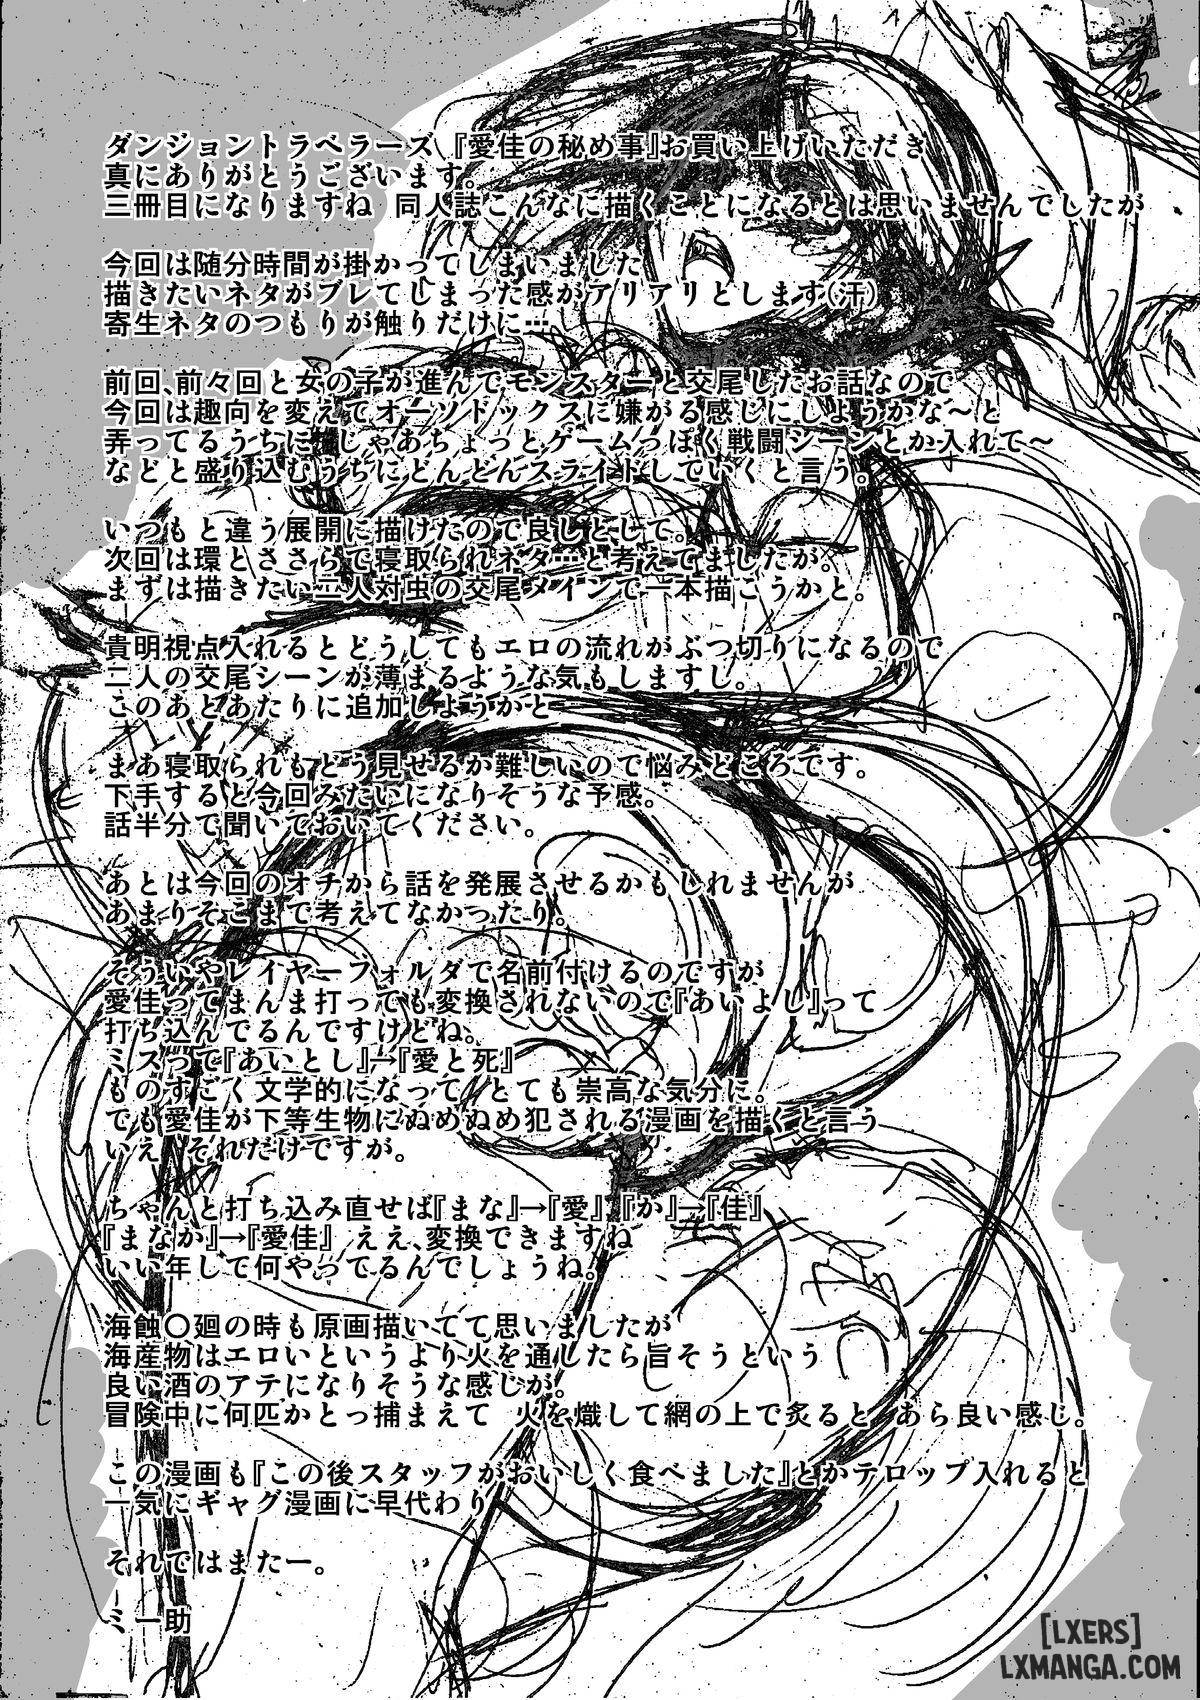 ダンジョントラベラーズ『愛佳の秘め事』お買い上げいただき
真にありがとうございます。
三冊目になりますね 同人誌こんなに描くことになるとは思いませんでしたが
今回は随分時間が掛かってしまいました
描きたいネタがブレてしまった感がアリアリとします(汗)
寄生ネタのつもりが触りだけに…
前回、前々回と女の子が進んでモンスターと交尾したお話なので
今回は趣向を変えてオーソドックスに嫌がる感じにしようかな～と
弄ってるうちに、じゃあちょっとゲームっぽく戦闘シーンとか入れて～
などと盛り込むうちにどんどんスライドしていくと言う。
いつもと違う展開に描けたので良しとして。
次回は環とささらで寝取られネタ…と考えてましたが。
まずは描きたい二人対虫の交尾メインで一本描こうかと。
貴明視点入れるとどうしてもエロの流れがぶつ切りになるので
二人の交尾シーンが薄まるような気もしますし。
このあとあたりに追加しようかと
まあ寝取られもどう見せるか難しいので悩みどころです。
下手すると今回みたいになりそうな予感。
話半分で聞いておいてください。
あとは今回のオチから話を発展させるかもしれませんが
あまりそこまで考えてなかったり。
そういやレイヤーフォルダで名前付けるのですが
愛佳ってまんま打っても変換されないので『あいよし』って
打ち込んでるんですけどね。
ミスって『あいとし』→『愛と死』
ものすごく文学的になって とても崇高な気分に。
でも愛佳が下等生物にぬめぬめ犯される漫画を描くと言う
いえ それだけですが。
ちゃんと打ち込み直せば『まな』→『愛』、『か』→『佳』
『まなか』→『愛佳』 ええ、変換できますね
いい年して何やってるんでしょうね。
海蝕〇廻の時も原画描いてて思いましたが
海産物はエロいというより火を通したら旨そうという
良い酒のアテになりそうな感じが。
冒険中に何匹かとっ捕まえて 火を熾して網の上で炙ると あら良い感じ。
この漫画も『この後スタッフがおいしく食べました』とかテロップ入れると
一気にギャグ漫画に早代わり
それではまたー。
ミー助
[LXERS]
LXMANGA.COM